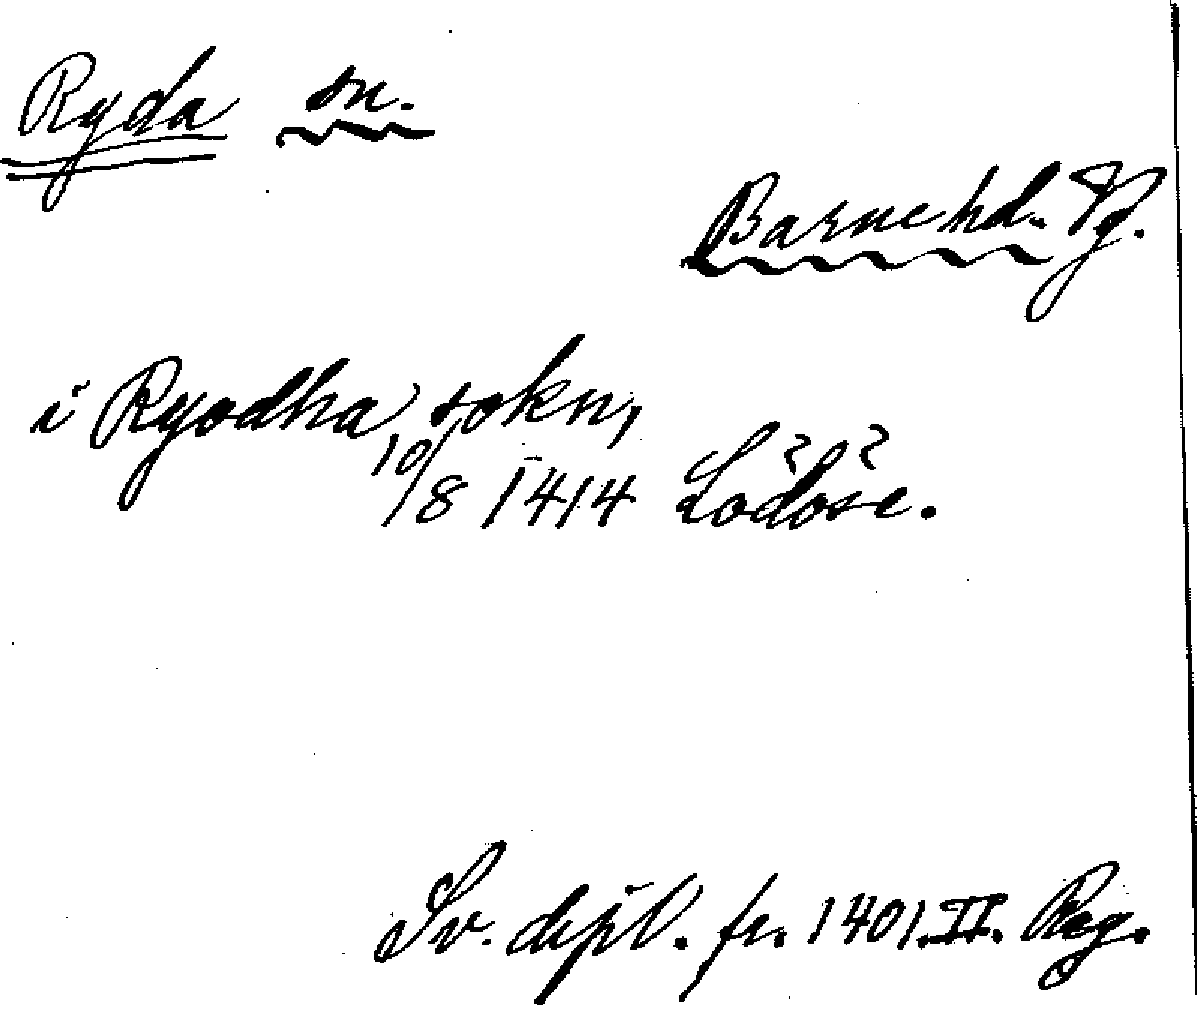 Ryda sn.
Barne hd. Vg.
i Ryodha sokn,
10/8 1414 Lödöse.
Sv. dipl. fr. 1401. II. Reg.